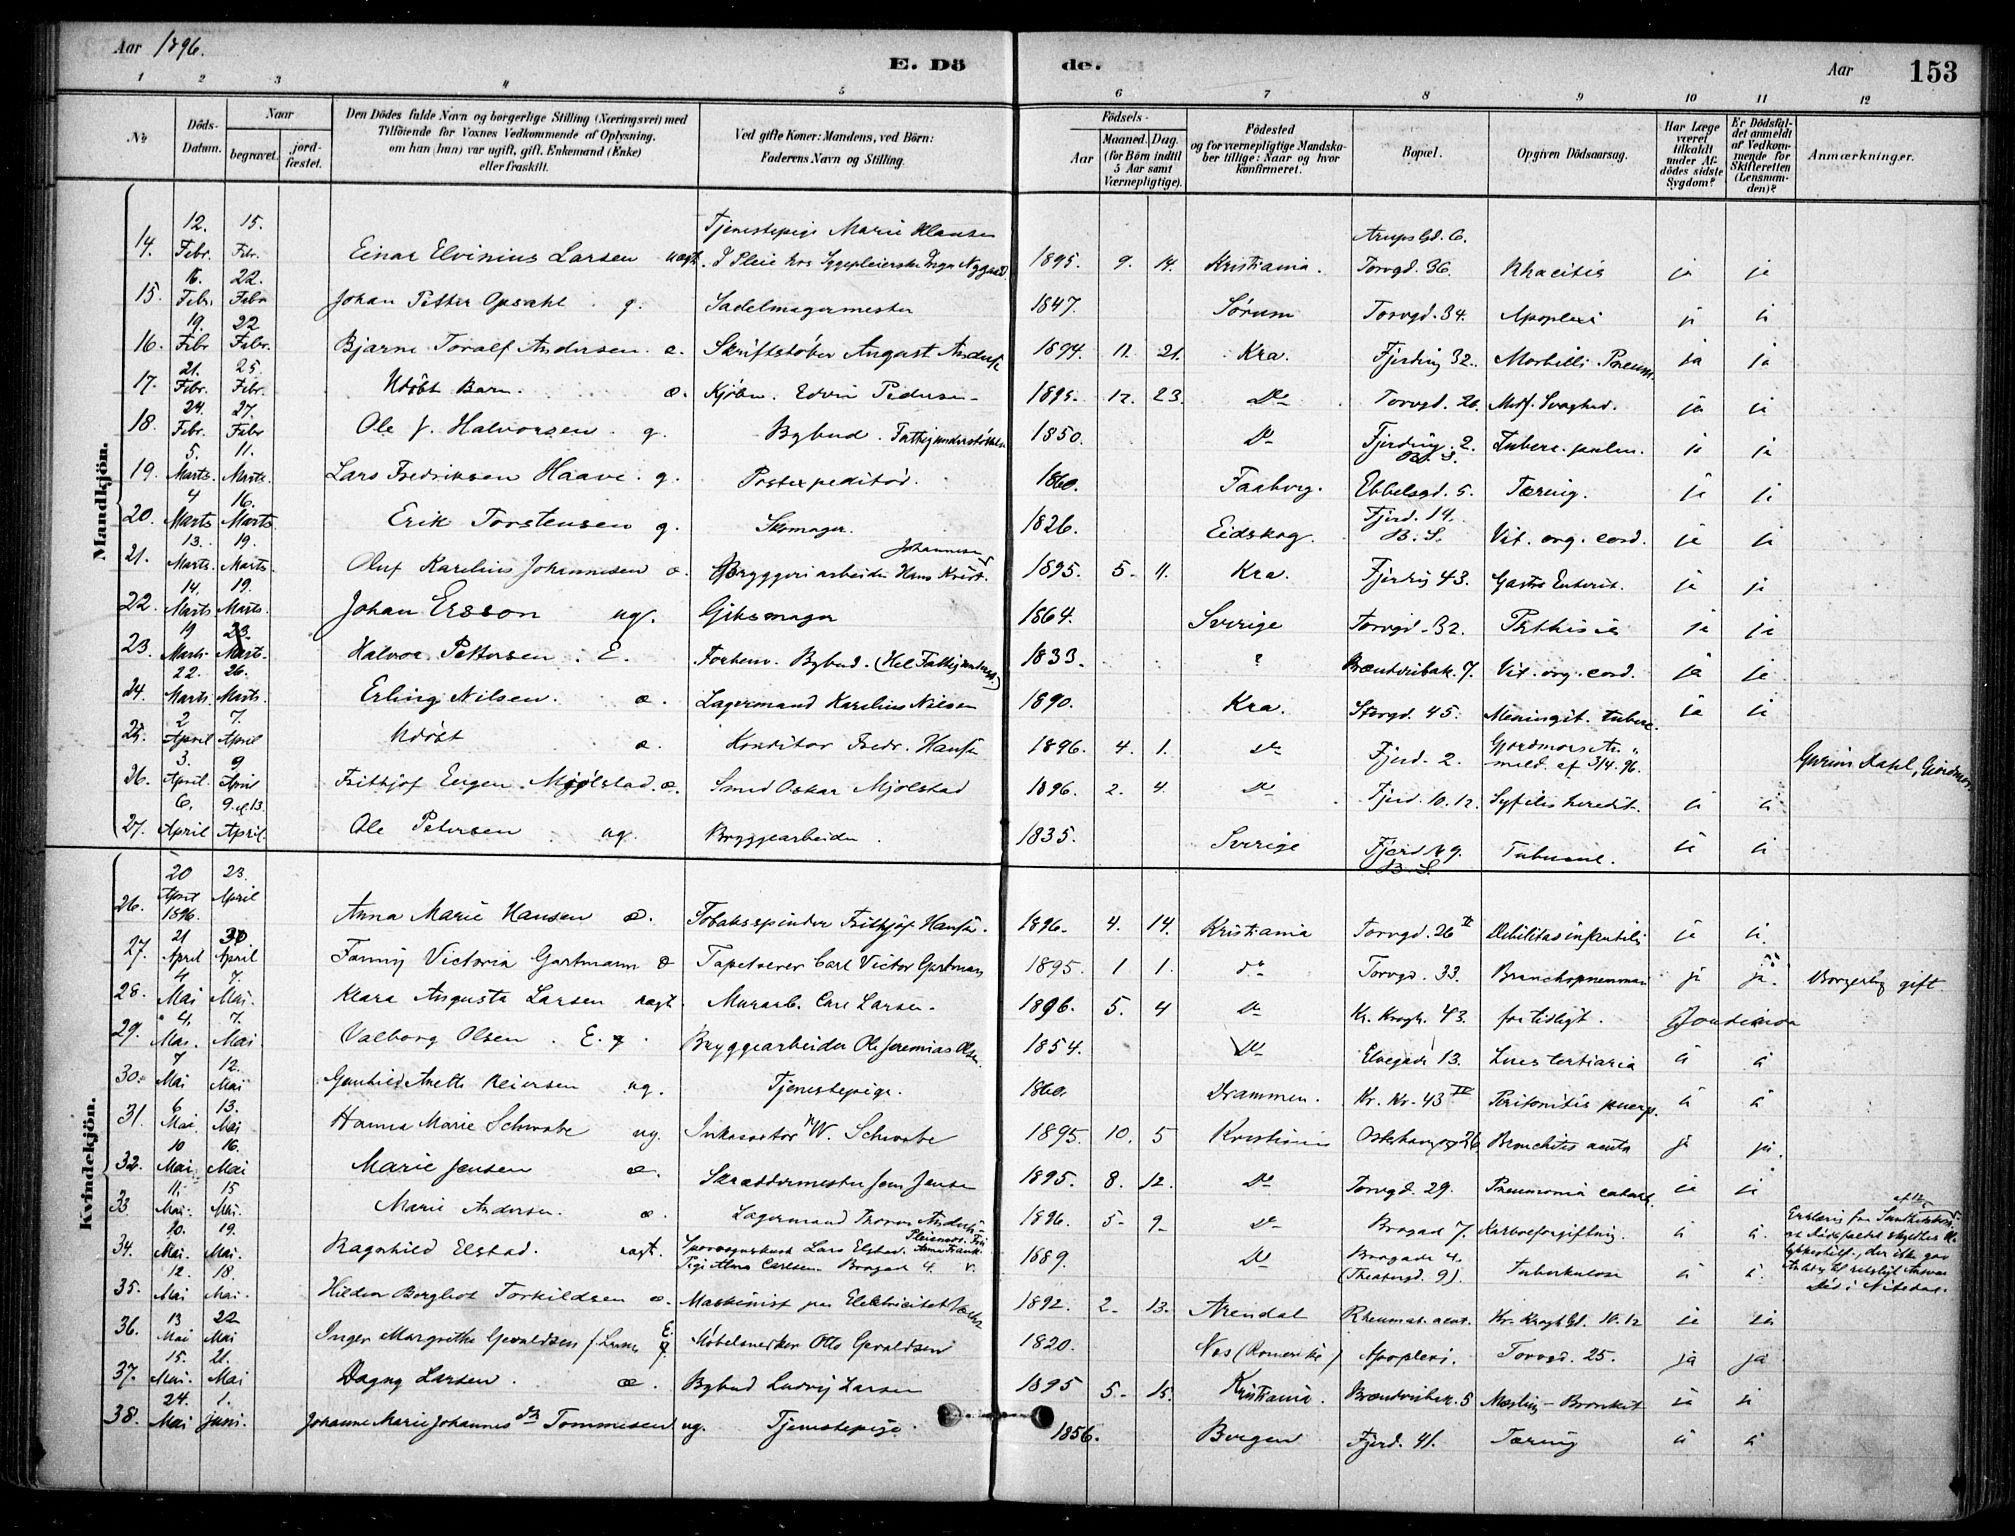 Aar 1896.
E. Dö
de.
Aar
153
1 2 3 4 5 6 7 8 9 10 11 12
No
Döds-Datum.
Naar
begravet.
jord-fæstet.
Den Dödes fulde Navn og borgerlige Stilling (Næringsvei) med
Tilföiende for Voxnes Vedkommende af Oplysning,
om han (hun) var ugift, gift, Enkemand (Enke)
eller fraskilt.
Ved gifte Koner: Mandens, ved Börn:
Faderens Navn og Stilling.
Födsels-
Aar
Maaned. Dag.
(for Börn indtil
5 Aar samt
Værnepligtige).
Födested
og for værnepligtige Mandska-
ber tillige: Naar og hvor
konfirmeret.
Bopæl.
Opgiven Dödsaarsag.
Har Læge
været
tilkaldt
under Af-
dödes sidste
Sygdom?
Er Dödsfal-
det anmeldt
af Vedkom-
mende for
Skifteretten
(Lensman-
den)?
Anmærkninger.
Mandkjön.
14. 12. Febr. 15. Febr. Einar Elvinius Larsen uægt. Tjenestepige Marie Klausen I Pleie hos Sygepleierske Inga Nygaard 1895. 9. 14. Kristiania. Arups Gd. 6. Torvgd. 36. Rhacitis ja ja
15. 16. Febr. 22. Febr Johan Petter Opsahl g. Sadelmagermester 1847. Sørum Torvgd. 34. Apoplexi ja ja
16. 19. Febr 22 Febr. Bjarne Toralf Andersen æ. Skriftstøber August Anders. 1894. 11. 21. Kra. Fjerding 32. Morbilli Pneum. ja ja
17. 21. Febr. 25. Febr. Udøbt Barn. æ. Kjøbm. Edvin Pedersen 1895. 12. 23. Do Torvgd. 26. Medf. Svaghed. ja ja
18. 24. Febr. 27. Febr Ole J. Halvorsen g. Bybud. Fattigunderstøttelse 1850. Do Fjerding. 2. B. S. Tuberc. pulm. ja ja
19. 5. Marts. 11. Marts. Lars Fredriksen Haave. g. Postexpeditør. 1860. Faaborg. Ebbelsgd. 5. Tæring. ja ja
20. 4 Marts 16. Marts. Erik Torstensen g. Skomager. 1826. Eidskog. Fjerd. 14. B. S. Vit. org. cord. ja ja
21. 13. Marts. 19. Marts. Oluf Karelius Johannesen æ. Bryggeriarbeider Hans Krist. Johannesen 1895. 5. 11. Kra. Fjerding 43. Gastro Enterit. ja ja
22. 14. Marts 19. Marts. Johan Ersson ug. Gibsmager 1864. Sverige Torvgd. 32. Phthisis ja ja
23. 19 Marts. 23. Marts. Halvor Pettersen. E. Forhenv. Bybud. (Hel Fattigunderst.) 1833. ? Brænderibak. 7. Vit. org. cord. ja ja
24. 22. Marts. 26. Marts. Erling Nilsen. æ. Lagermand Karelius Nilsen 1890. Kra. Storgd. 45. Meningit. tuberc. ja ja
25. 2 April 7. April Udøbt æ. Konditor Fredr. Hansen 1896. 4. 1. Do Fjerd. 2. Gjordmors An- meld. af 3/4 96. Gurine Dahl, Gjordmor.
26. 3. April. 9 April Frithjof Eugen Mjølstad. æ. Smed Oskar Mjølstad 1896. 2. 4. Do Fjerd. 10. 12. Syfilis heredit. ja ja
27. 6. April 9. el 13. April. Ole Petersen ug. Bryggearbeider. 1835. Sverige Fjerd. 49. B. S. Tubercul. ja ja
Kvindekjön.
26. 20 April 1896. 23. April Anna Marie Hansen æ. Tobaksspinder Frithjof Hansen. 1896. 4. 14. Kristiania Torvgd. 26 II Debilitas infantilis ja ja.
27. 21 April 30 April Fanny Victoria Gartmann æ Tapetserer Carl Victor Gartman 1895. 1. 1. do Torvgd. 33. Bronchopneumoni ja ja. Borgerlig gift.
28. 4 Mai 7. Mai. Klara Augusta Larsen uægt. Murarb. Carl Larsen. 1896. 5. 4 Do Kr. Krogh. 43. for tidligt. Jordmor
29. 4. Mai. 7. Mai Valborg Olsen. E. g. Bryggearbeider Ole Jeremias Olsen 1854. Do Elvegade 13. Lues tertiaria ja ja
30. 7 Mai 12. Mai Gunhild Anette Reiersen ug. Tjenestepige. 1860. Drammen. Kr. Kr. 43 IV Peritonitis puerp. ja ja
31. 6 Mai. 13. Mai Hanna Marie Schwabe ug. Inkassator W. Schwabe 1895. 10. 5 Kristiania Ostehaugg 26. Bronchitis acuta ja ja.
32. 10 Mai. 16. Mai Marie Jensen æ. Skræddermester Jens Jensen 1895. 8. 12. Do Torvgd. 29. Pneumonia catarrh. ja ja
33 11. Mai. 15 Mai. Marie Andersen. æ. Lagermand Thorvas Andersen 1896. 5. 9. Do Brogad 7. Karboleforgiftning. ja ja.
34. 20. Mai. 19. Mai. Ragnhild Elstad. uægt. Sporvognskusk Lars Elstad. Pige Alma Carlsen Brogad 4. 1889. Do Brogade 4. (Theatergd. 9). Tuberkulose ja ja. Død i Nitedal.
35. 12. Mai 18. Mai. Hildur Borghot Torkildsen æ. Maskinist paa Elektricitetsværket 1892. 2. 13. Arendal Rheumat. acut. Kr. Krogh Gd. 10. 12 ja ja
36. 13 Mai 22 Mai Inger Margrethe Gevaldsen f. Larsen E. g. Møbelsnedker Otto Gevaldsen 1820. Nes (Romerike) Apoplexi. Torvgd. 25. ja ja
37. 15. Mai. 21. Mai Dagny Larsen. æ. Bybud Ludvig Larsen 1895 5. 15. Kristiania. Brænderibak. 5 Mæsling - Bronkit ja ja
38. 24. Mai 1. juni. Johanne Marie Johannes dtr Tommesen ug. Tjenestepige. 1856. Bergen Fjerd. 41. Tæring ja ja